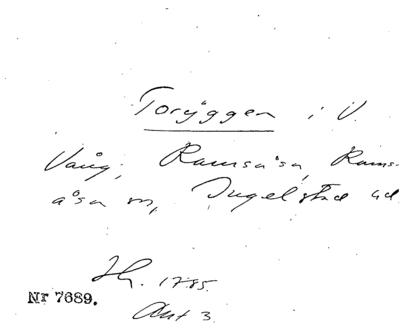 Toryggen i V.
Vång, Ramsåsa, Rams-
åsa sn, Ingelstad hd.
Sk. 1785.
Nr 7689.
Akt 3